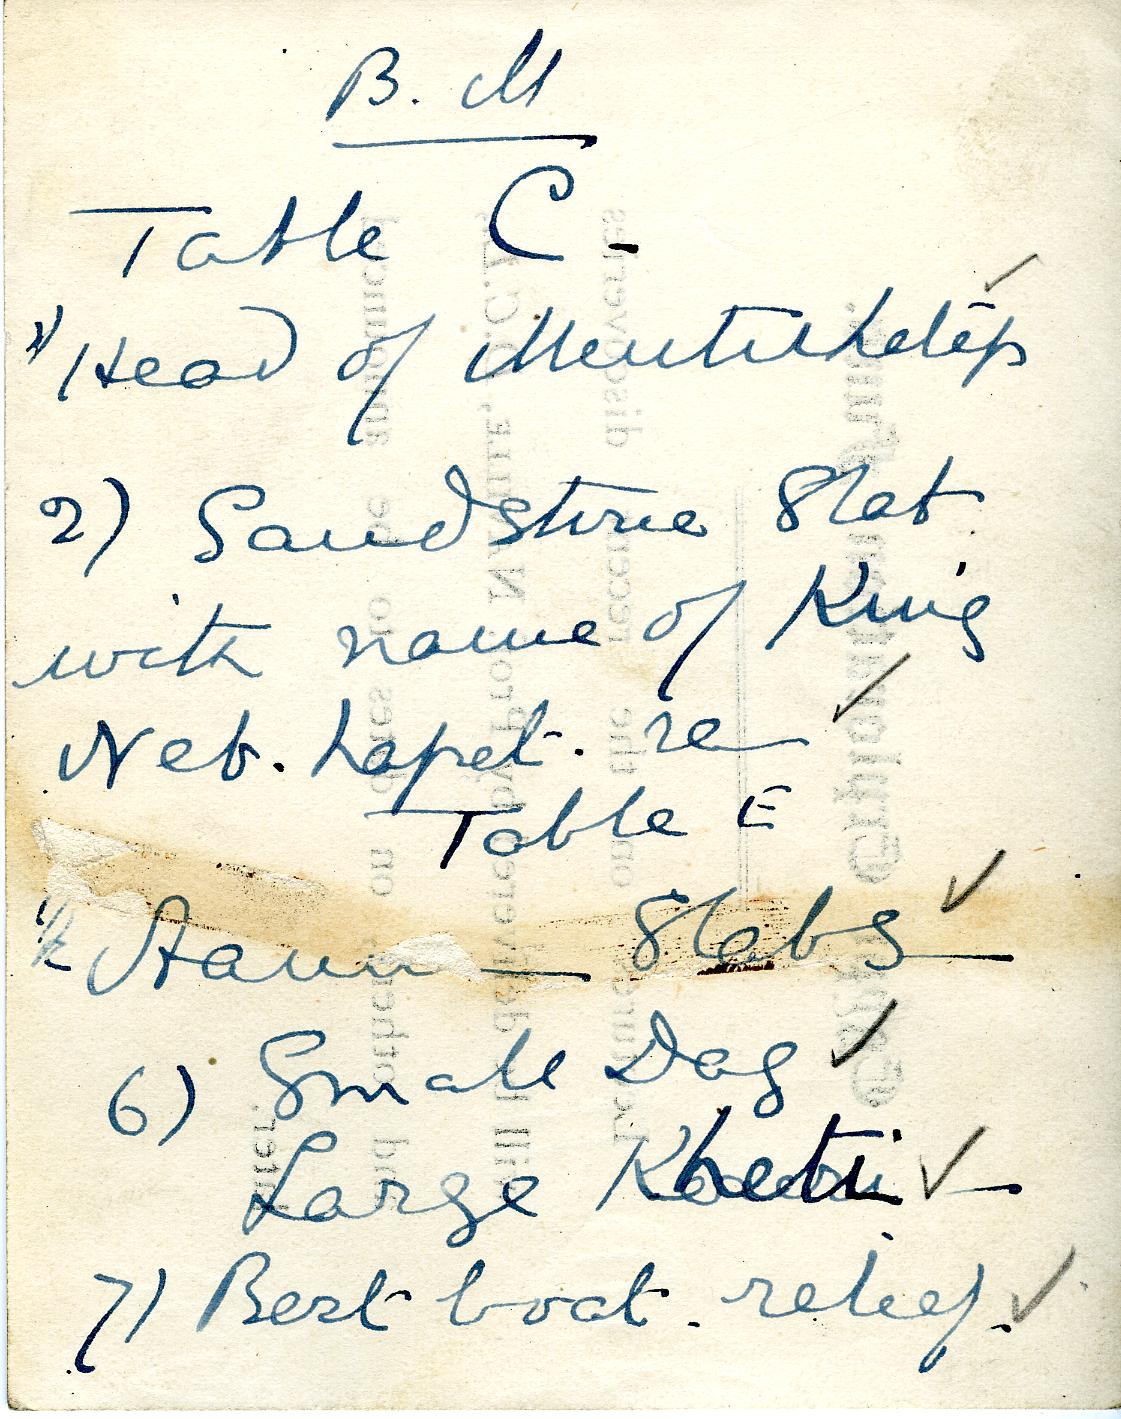 B. M
Table C -
1) Head of Mentuhotep
2) Sandstone Slab
with name of King
Neb. hapet. re
Table E
Aamu — Slabs —
6) Small Dag
Large Kheti —
7) Best boat. relief.